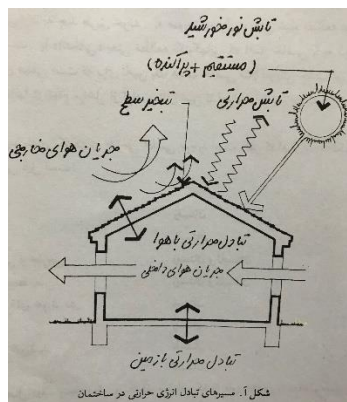 تابش نور خورشید
(مستقیم + پراکنده)
تبخیر سطح
تابش حرارتی
جریان هوای خارجی
تبادل حرارتی با هوا
جریان هوای داخلی
تبادل حرارتی با زمین
شکل آ. مسیرهای تبادل انرژی حرارتی در ساختمان